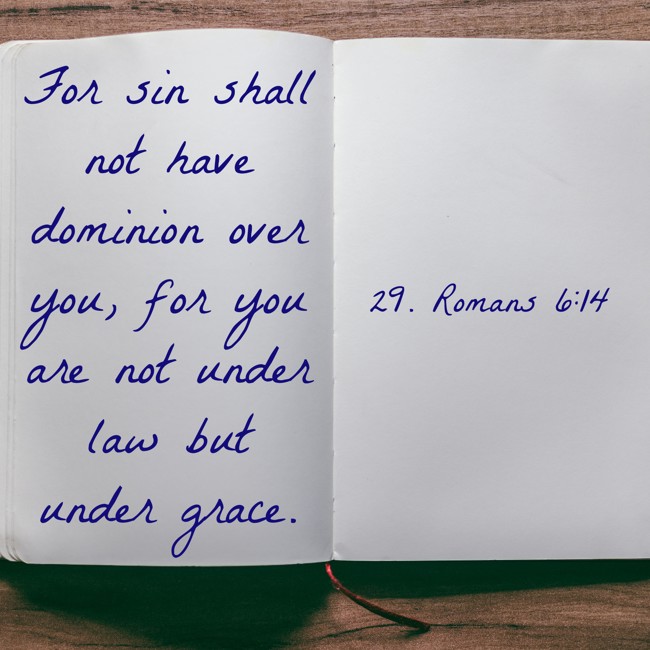 For sin shall
not have
dominion over
you, for you
are not under
law but
under grace.
29. Romans 6:14